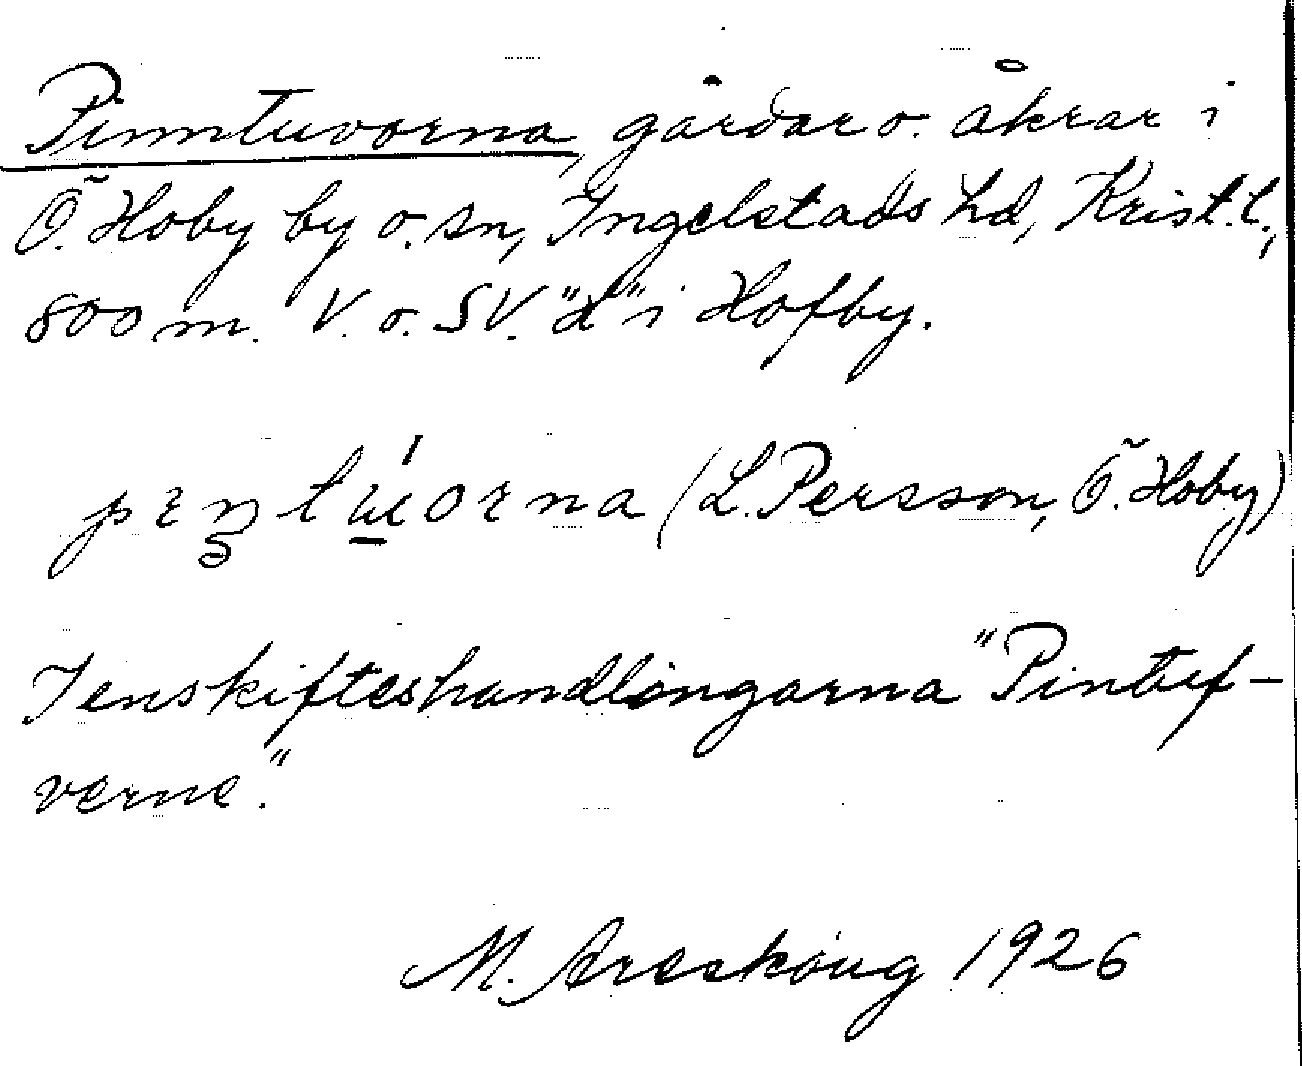 Pinntuvorna, gårdar o. åkrar i
Ö. Hoby by o. sn, Ingelstads hd, Krist. l.,
800 m. V. o. SV. "d" i Hofby.
(L. Persson, Ö. Hoby)
I enskifteshandlingarna "Pintuf-
verne."
M. Areskoug 1926